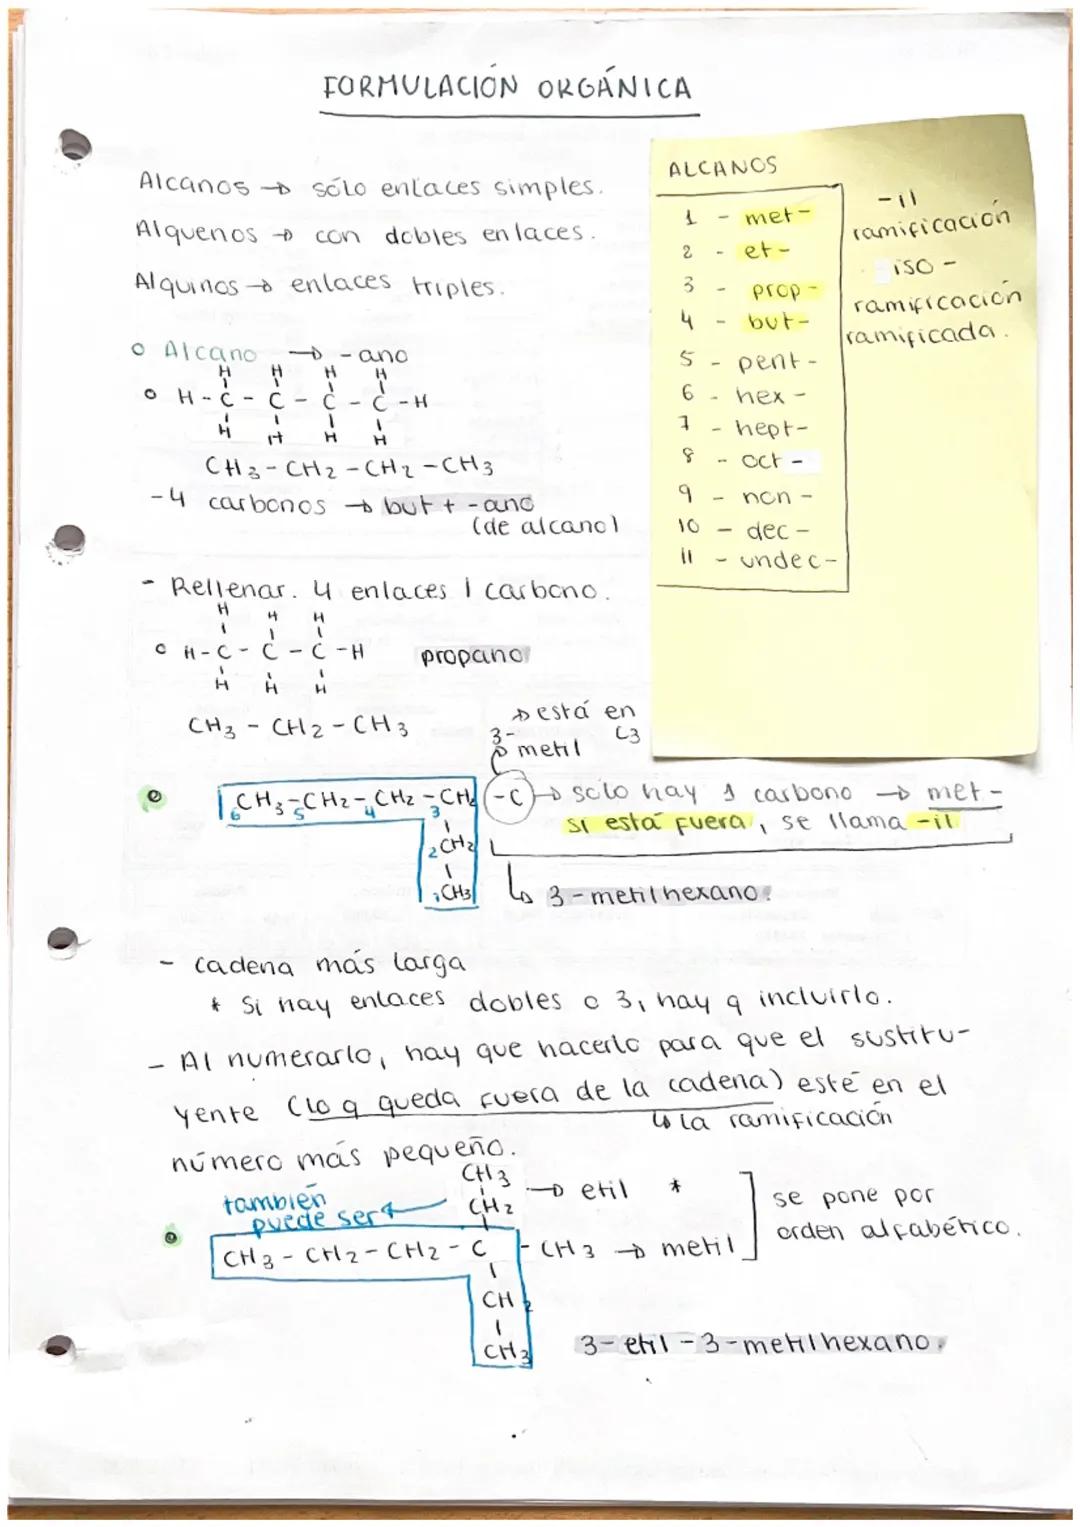 FORMULACIÓN ORGÁNICA
Alcanos → sólo enlaces simples.
Alquenos → con dobles enlaces.
Alquinos → enlaces triples.
Alcano → -ano
H H H H
H - C - C - C - C - H
H H H H
CH3 - CH2 - CH2 - CH3
- 4 carbonos → but + -ano
(de alcano)
- Rellenar. 4 enlaces 1 carbono.
H H H
H - C - C - C - H
H H H
propano
CH3 - CH2 - CH3
ALCANOS
1 - met-
2 - et-
3 - prop-
4 - but-
5 - pent-
6 - hex-
7 - hept-
8 - oct-
9 - non-
10 - dec-
11 - undec-
-il
ramificación
iso -
ramificación
ramificada.
→ está en
3- C3
metil
CH3 - CH2 - CH2 - CH - C → sólo hay 1 carbono → met-
6 5 4 3
si está fuera, se llama -il
2 CH2
1 CH3
↳ 3-metilhexano.
- cadena más larga
* Si hay enlaces dobles o 3, hay q incluirlo.
- Al numerarlo, hay que hacerlo para que el sustitu-
yente (lo q queda fuera de la cadena) esté en el
↳ la ramificación
número más pequeño.
CH3
→ etil *
también
puede ser ←
CH2
CH3 - CH2 - CH2 - C - CH3 → metil
se pone por
orden alfabético.
CH2
CH3
3-etil-3-metilhexano.